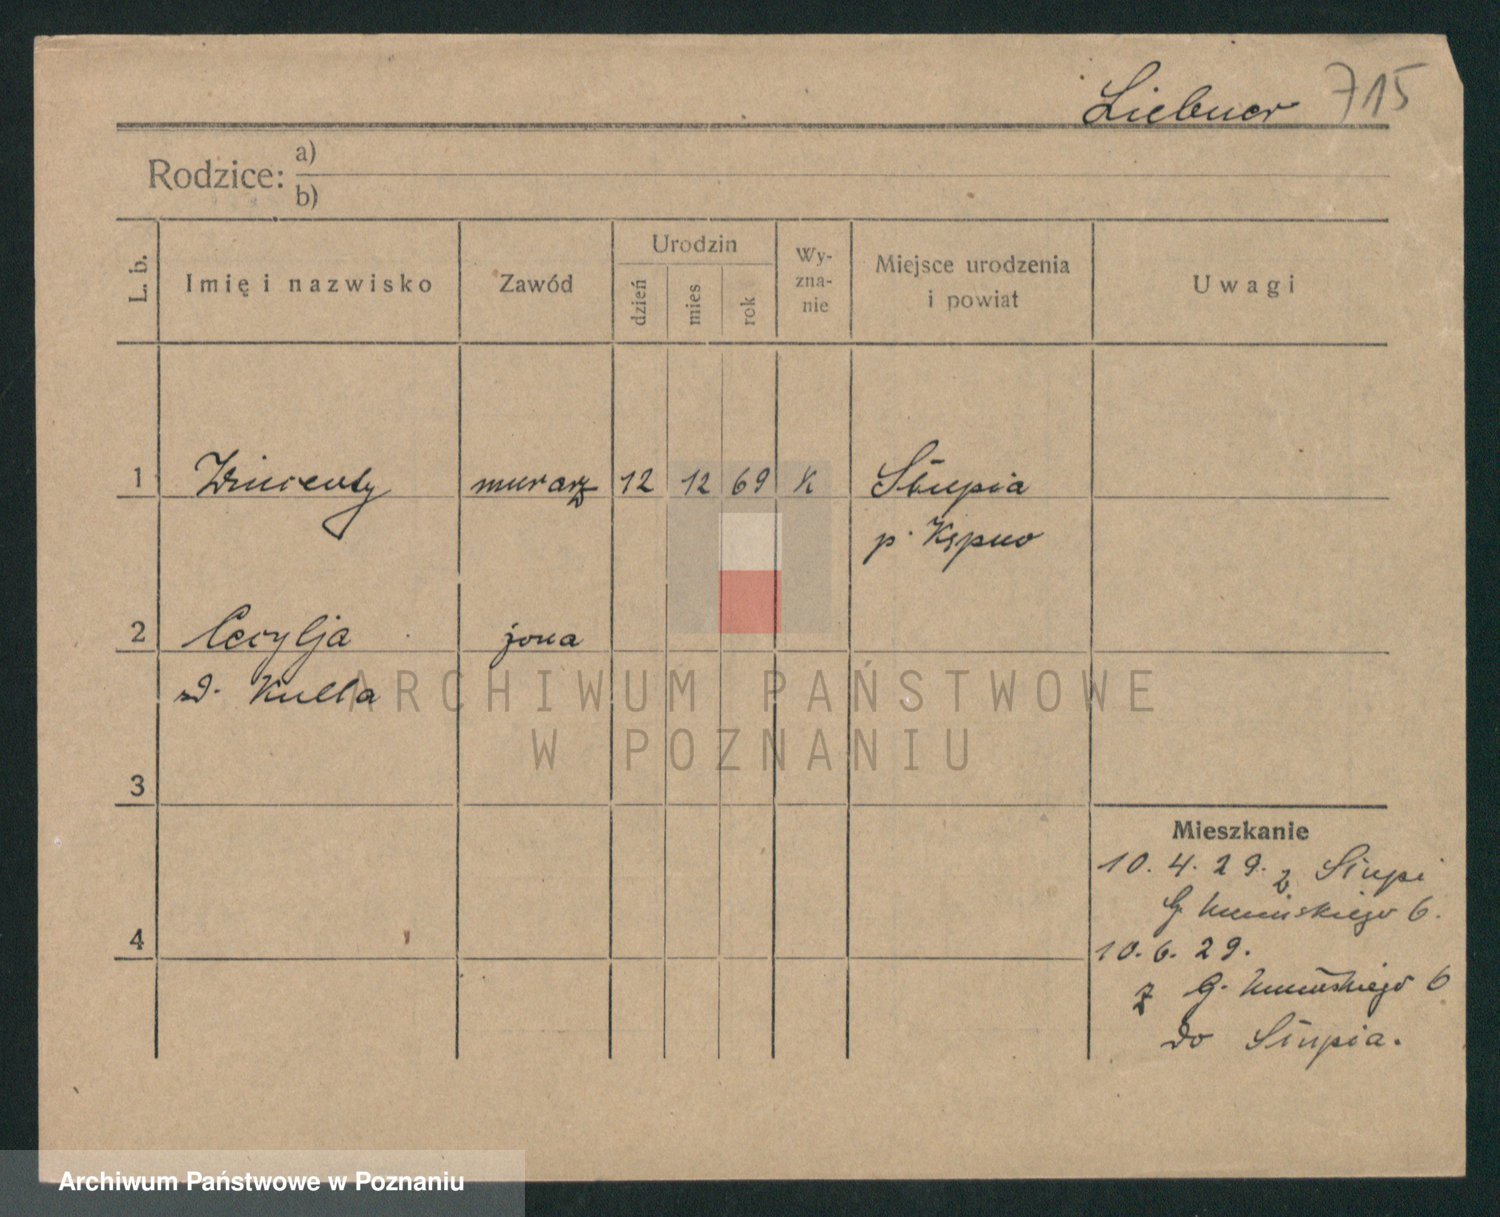 Liebner 715
Rodzice: a)
b)
L. b.
Imię i nazwisko
Zawód
Urodzin
dzień
mies
rok
Wy-
zna-
nie
Miejsce urodzenia
i powiat
Uwagi
1 Wincenty murarz 12 12 69 K Słupia
p. Kępno
2 Cecylja żona
d. Kulla
3
4
Mieszkanie
10. 4. 29. z Słupi
G. 6.
10. 6. 29.
z G. 6
do Słupia.
ARCHIWUM PAŃSTWOWE
W POZNANIU
Archiwum Państwowe w Poznaniu